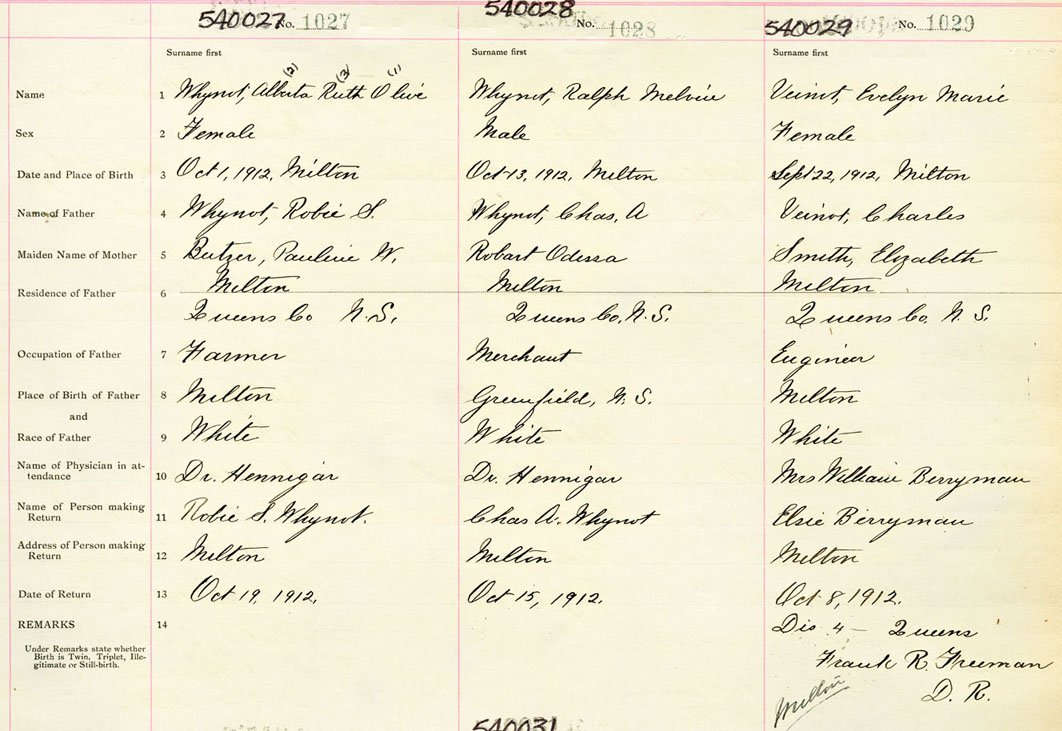 540027 No. 1027 540028 No. 1028 540029 No. 1029
Surname first Surname first Surname first
(2) (3) (1)
Name 1 Whynot, Alberta Ruth Olive Whynot, Ralph Melvin Veinot, Evelyn Marie
Sex 2 Female Male Female
Date and Place of Birth 3 Oct 1, 1912, Milton Oct 13, 1912, Milton Sept 22, 1912, Milton
Name of Father 4 Whynot, Robie S. Whynot, Chas, A Veinot, Charles
Maiden Name of Mother 5 Butzer, Pauline W. Robart Odessa Smith, Elizabeth
Residence of Father 6 Milton Milton Milton
Queens Co N.S. Queens Co, N.S. Queens Co, N.S.
Occupation of Father 7 Farmer Merchant Engineer
Place of Birth of Father 8 Milton Greenfield, N.S. Milton
and
Race of Father 9 White White White
Name of Physician in at-
tendance 10 Dr. Hennigar Dr. Hennigar Mrs William Berryman
Name of Person making
Return 11 Robie S. Whynot. Chas A. Whynot Elsie Berryman
Address of Person making
Return 12 Milton Milton Milton
Date of Return 13 Oct 19, 1912. Oct 15, 1912. Oct 8, 1912.
REMARKS 14 Dis 4 - Queens
Under Remarks state whether
Birth is Twin, Triplet, Ille-
gitimate or Still-birth.
Frank R. Freeman
D. R.
Milton
540031